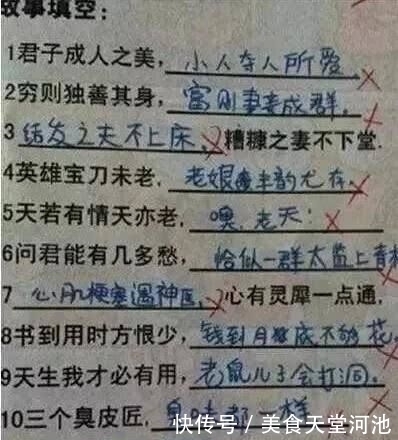 故事填空：
1君子成人之美，小人夺人所爱
2穷则独善其身，富则妻妾成群，
3结发之夫不上床，糟糠之妻不下堂.
4英雄宝刀未老，老娘半韵尤存，
5天若有情天亦老，噢，老天！
6问君能有几多愁，恰似一群太监上青
7心肌梗塞遇神医，心有灵犀一点通，
8书到用时方恨少，钱到月底不够花，
9天生我才必有用，老鼠儿子会打洞，
10三个臭皮匠，一样
快传号/美食天堂河池